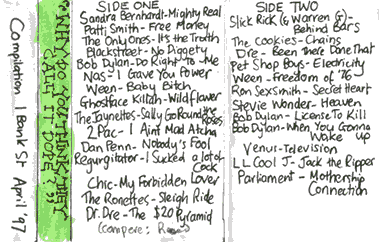 Compilation 1 Bank St April '97
"WHY DO YOU THINK THEY
CALL IT DOPE?"
SIDE ONE
Sandra Bernhardt - Mighty Real
Patti Smith - Free Money
The Only Ones - It's the Truth
Blackstreet - No Diggety
Bob Dylan - Do Right To Me
Nas - I Gave You Power
Ween - Baby Bitch
Ghostface Killah - Wildflower
The Jaynettes - Sally Go Round the Roses
2 Pac - I Ain't Mad Atcha
Dan Penn - Nobody's Fool
Regurgitator - I Sucked a lot of
Cock
Chic - My Forbidden Lover
The Ronettes - Sleigh Ride
Dr. Dre - The $20 Pyramid
(compere:
SIDE TWO
Slick Rick (& Warren G) -
Behind Bars
The Cookies - Chains
Dre - Been There Done That
Pet Shop Boys - Electricity
Ween - Freedom of '76
Ron Sexsmith - Secret Heart
Stevie Wonder - Heaven
Bob Dylan - License To Kill
Bob Dylan - When You Gonna
Wake up
Venus - Television
LL Cool J - Jack the Ripper
Parliament - Mothership
Connection